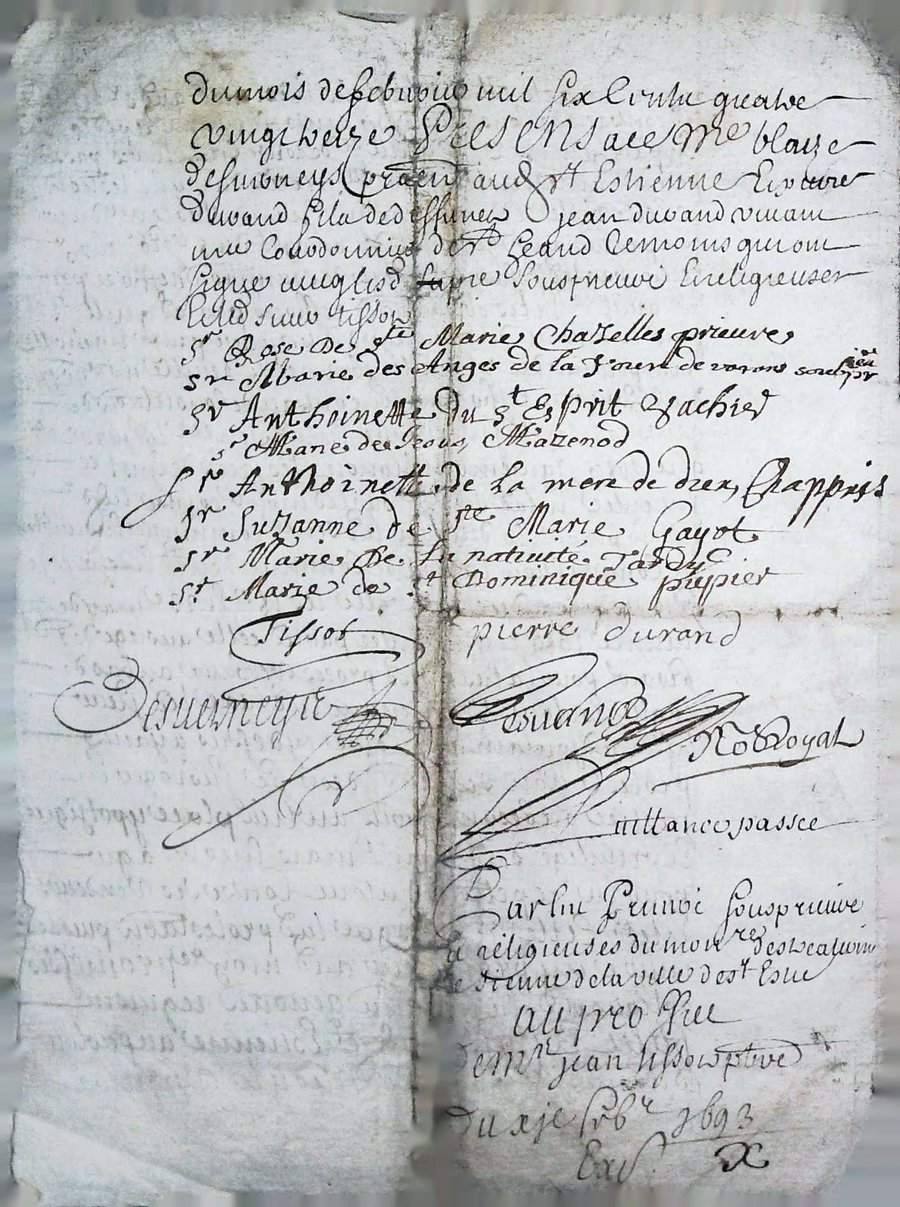 du mois de febvrier mil six cents quatre
vingt treize Presens a ce Me blaize
audt st Estienne Et pierre
durand fils de deffunct jean durand vivant
me Courdonnier de st temoins qui ont
signé prieure Sousprieure Et religieuses
Et led sieur tissot
sr Rose De ste Marie Chazelles prieure
sr Marie des Anges de la Tour de varans
sr Anthoinette Du st Esprit vachier
sr Marie de Jesus Mazenod
sr Anthoinette de la mere de dieu Chappuis
sr Suzanne de ste Marie Gayot
sr Marie De La nativité Tardy
sr Marie de st Dominique pupier
Tissot pierre durand
Desverneys
No Royal
quittance passée
Par les Prieure Sousprieure
Et religieuses du monre de ste Catherine
de sienne de la ville de st Esne
au proffit
de mre jean tissot pbre
du xje febr 1693